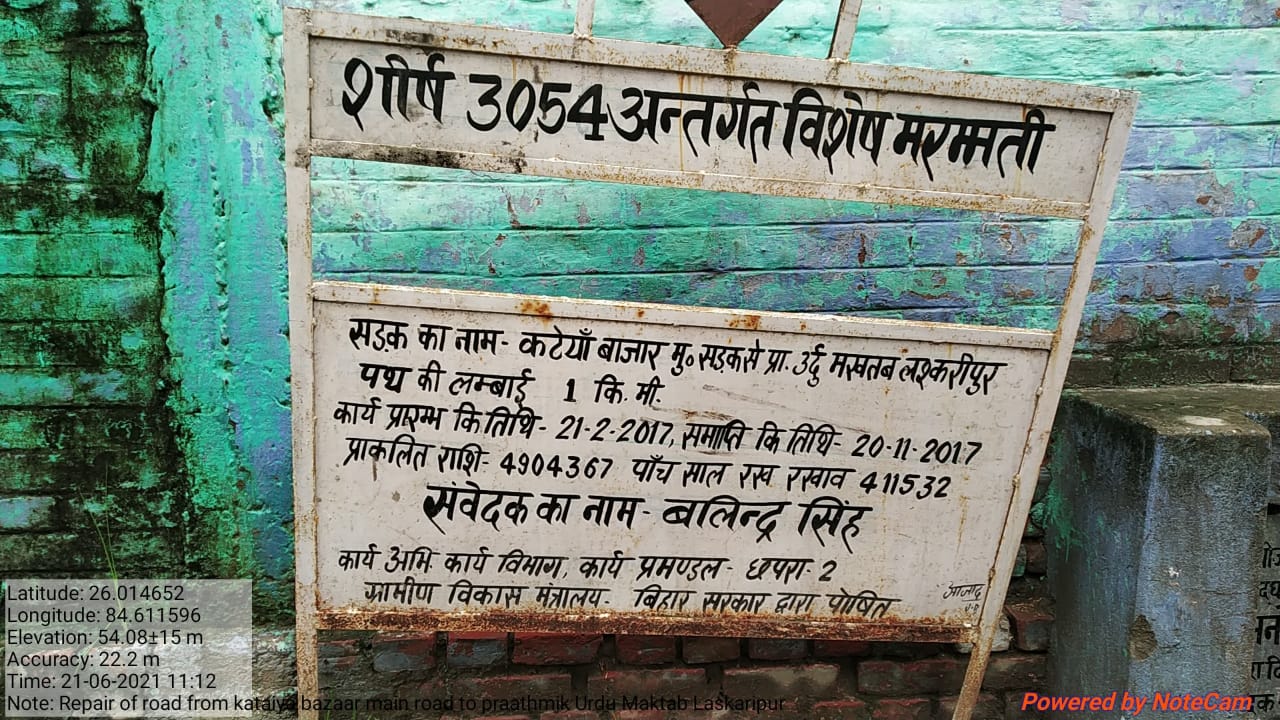 शीर्ष 3054 अन्तर्गत विशेष मरम्मती
सड़क का नाम- कटेयाँ बाजार मु॰ सड़क से प्रा. उर्दु मखतब लश्करीपुर
पथ की लम्बाई 1 कि. मी.
कार्य प्रारम्भ कि तिथि- 21-2-2017, समाप्ति कि तिथि- 20-11-2017
प्राकलित राशि- 4904367 पाँच साल रख रखाव 411532
संवेदक का नाम- बलिन्द्र सिंह
कार्य अभि कार्य विभाग, कार्य प्रमण्डल- छपरा-2
ग्रामीण विकास मंत्रालय- बिहार सरकार द्वारा पोषित
आजाद
Latitude: 26.014652
Longitude: 84.611596
Elevation: 54.08±15 m
Accuracy: 22.2 m
Time: 21-06-2021 11:12
Note: Repair of road from kataiya bazaar main road to praathmik Urdu Maktab Laskaripur
Powered by NoteCam